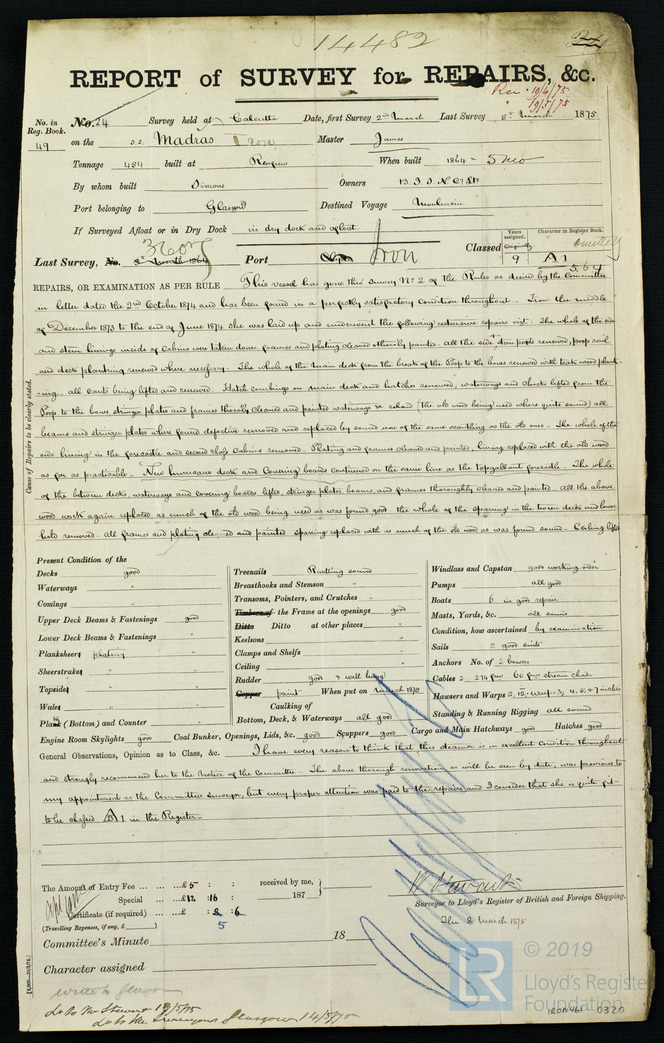 14482
REPORT of SURVEY for REPAIRS, &c.
Rec 10/4/75
" 19/5/75
No. in Reg. Book. 49
No. 24 Survey held at Calcutta Date, first Survey 2nd March Last Survey 8th March 1875
on the s.s. Madras Iron Master James
Tonnage 454 built at Renfrew When built 1864 - 5 mo
By whom built Simons Owners B. I. S. N. Co Ld
Port belonging to Glasgow Destined Voyage Moulmein
If Surveyed Afloat or in Dry Dock in dry dock and afloat
Last Survey, No. Port Iron Classed Years assigned, originally 9 Character in Register Book. A1 5,64
REPAIRS, OR EXAMINATION AS PER RULE This vessel has gone thro' Survey No 2 of the Rules as desired by the Committee
in letter dated the 2nd October 1874 and has been found in a perfectly satisfactory condition throughout - From the middle
of December 1873 to the end of June 1874 she was laid up and underwent the following extensive repairs vizt: The whole of the side
and stem linings inside of Cabins were taken down, frames and plating cleaned & thoroly painted - all the side poop renewed, poop rail
and deck planking renewed where necessary. The whole of the main deck from the break of the Poop to the bows renewed with teak wood plank-
ing. all coats being lifted and renewed. Hatch combings on main deck and hatches renewed, waterways and chocks lifted from the
Poop to the bows stringer plates and frames thoroly cleaned and painted waterways & relaid (the old wood being used where quite sound) all
beams and stringer plates where found defective removed and replaced by sound iron of the same scantling as the old ones - The whole of the
side lining in the forecastle and second class Cabins removed. Plating and frames cleaned and painted, lining replaced with the old wood
as far as practicable - New hurricane deck and Covering boards continued on the same line as the topgallant forecastle. The whole
of the between decks, waterways and covering boards lifted, stringer plates beams, and frames thoroughly cleaned and painted - All the above
wood work again replaced, as much of the old wood being used as was found good the whole of the sparring in the tween decks and lower
hold removed - all frames and plating cleaned and painted sparring replaced with as much of the old wood as was found sound - Ceiling lifted
Cause of Repairs to be clearly stated.
Present Condition of the
Decks good
Waterways "
Comings "
Upper Deck Beams & Fastenings good
Lower Deck Beams & Fastenings "
Planksheers plating "
Sheerstrakes "
Topsides "
Wales "
Plank (Bottom) and Counter "
Treenails Rivetting sound
Breasthooks and Stemson "
Transoms, Pointers, and Crutches "
Timbers of the Frame at the openings good
Ditto Ditto at other places "
Keelsons "
Clamps and Shelfs "
Ceiling "
Rudder good & well hung
Copper paint When put on March 1875
Caulking of
Bottom, Deck, & Waterways all good
Windlass and Capstan good working order
Pumps all good
Boats 6 in good repair
Masts, Yards, &c. all sound
Condition, how ascertained by examination
Sails 2 good suits
Anchors No. of 2 bowers
Cables 2 - 274 fms 60 fms stream chain
Hawsers and Warps
Standing & Running Rigging all sound
Engine Room Skylights good Coal Bunker, Openings, Lids, &c. good Scuppers good Cargo and Main Hatchways good Hatches good
General Observations, Opinion as to Class, &c. I have every reason to think that this steamer is in excellent Condition throughout
and strongly recommend her to the Notice of the Committee - The above thorough renovation, as will be seen by date, was previous to
my appointment as the Committee's surveyor, but every proper attention was paid to the repairs and I consider that she is quite fit
to be classed A1 in the Register -
The Amount of Entry Fee ... ... ... £5 : : received by me,
Special ... ... £12 : 16 : 187
Certificate (if required) ... £ : 8 : 6
5
(Travelling Expenses, if any, £ )
Surveyor to Lloyd's Register of British and Foreign Shipping.
The 8 March 1875
Committee's Minute 18
Character assigned
Write to Glasgow
Lr to Mr Stewart 19/5/75
Lr to the Surveyors Glasgow 14/5/75
LR © 2019
Lloyd's Register
Foundation
IRON461 0320